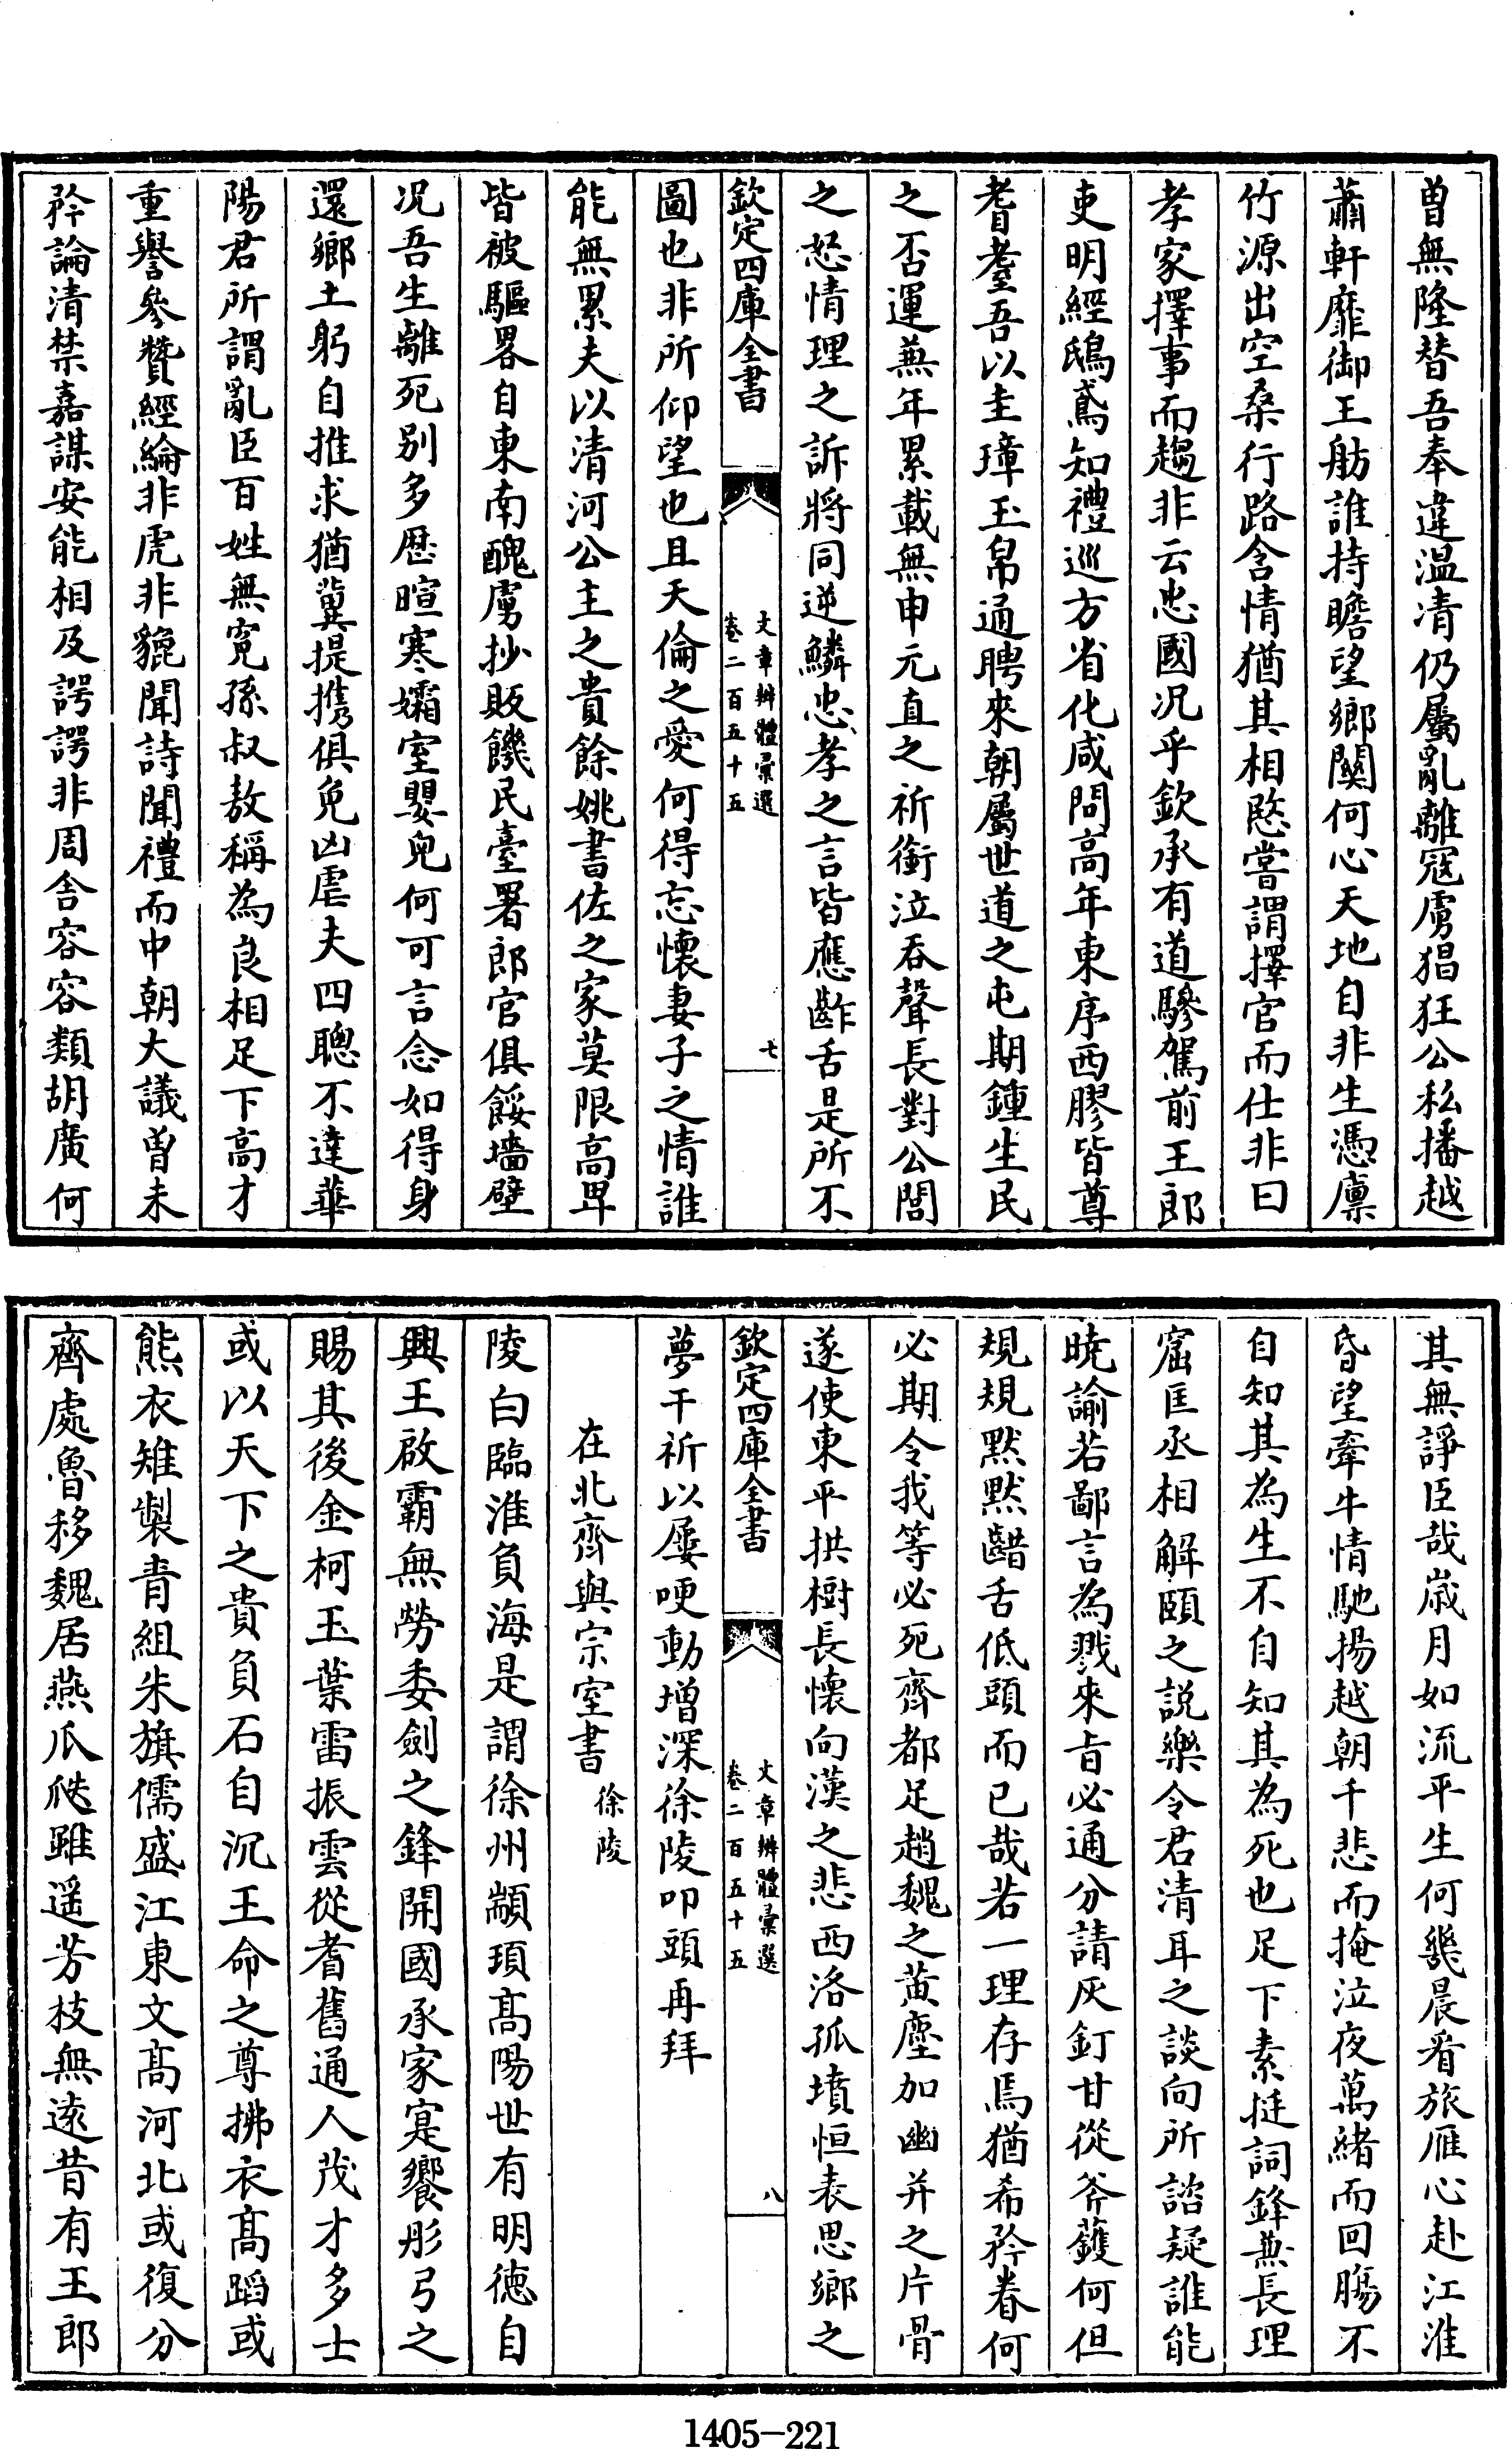 曽無隆替吾奉違温清仍屬亂離冦虜猖狂公私播越
蕭軒靡御王舫誰持瞻望鄉關何心天地自非生憑廪
竹源出空桑行路含情猶其相愍嘗謂擇官而仕非曰
孝家擇事而趨非云忠國况乎欽承有道驂駕前王郎
吏明經鴟鳶知禮巡方省化咸問高年東序西膠皆尊
耆耋吾以圭璋玉帛通聘來朝屬世道之屯期鍾生民
之否運兼年累載無申元直之祈銜泣吞聲長對公閭
之怒情理之訴將同逆鱗忠孝之言皆應齚舌是所不
欽定四庫全書
文章辨體彚選
卷二百五十五
七
圖也非所仰望也且天倫之愛何得忘懷妻子之情誰
能無累夫以清河公主之貴餘姚書佐之家莫限高卑
皆被驅畧自東南醜虜抄販饑民臺署郎官俱餒墻壁
况吾生離死别多歴暄寒孀室嬰兒何可言念如得身
還鄉土躬自推求猶冀提携俱免凶虐夫四聰不達華
陽君所謂亂臣百姓無寃孫叔敖稱為良相足下高才
重譽參贊經綸非虎非貔聞詩聞禮而中朝大議曽未
矜論清禁嘉謀安能相及諤諤非周舎容容類胡廣何
其無諍臣哉嵗月如流平生何幾晨看旅雁心赴江淮
昏望牽牛情馳揚越朝千悲而掩泣夜萬緒而回腸不
自知其為生不自知其為死也足下素挺詞鋒兼長理
窟匡丞相解頤之説樂令君清耳之談向所諮疑誰能
曉諭若鄙言為戮來旨必通分請灰釘甘從斧鑊何但
規規黙黙齰舌低頭而已哉若一理存焉猶希矜眷何
必期令我等必死齊都足趙魏之黄塵加幽并之片骨
遂使東平拱樹長懷向漢之悲西洛孤墳恒表思鄉之
欽定四庫全書
文章辨體彚選
卷二百五十五
八
夢干祈以屢哽動增深徐陵叩頭再拜
在北齊與宗室書
徐陵
陵白臨淮負海是謂徐州顓頊髙陽世有明徳自
興王啟霸無勞委劍之鋒開國承家寔饗彤弓之
賜其後金柯玉葉雷振雲從耆舊通人茂才多士
或以天下之貴負石自沉王命之尊拂衣髙蹈或
熊衣雉製青組朱旗儒盛江東文髙河北或復分
齊處魯移魏居燕爪瓞雖遥芳枝無逺昔有王郎
1405-221